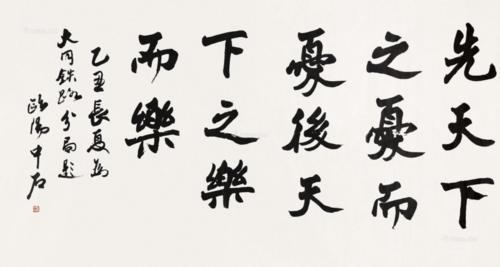 先天下
之憂而
憂後天
下之樂
而樂
乙丑長夏為
大同鉄路分局題
歐陽中石